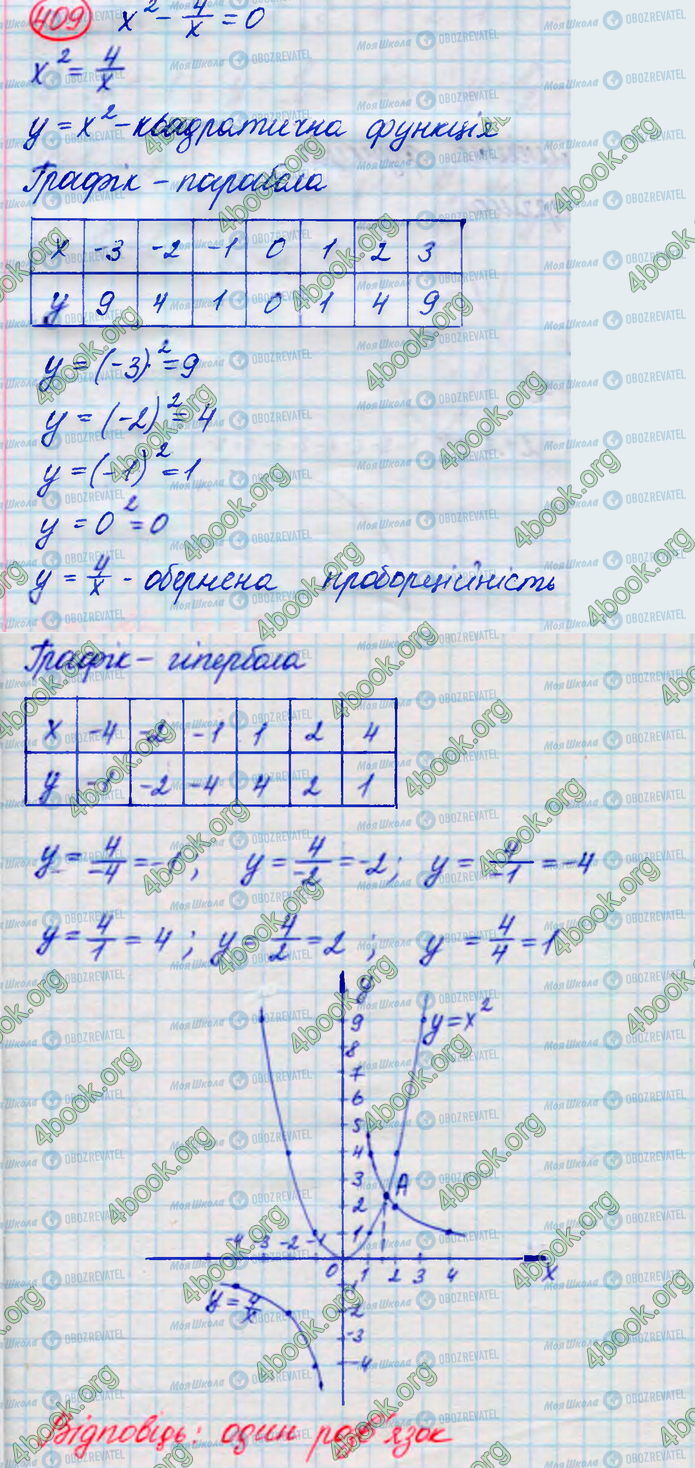 409 x² - 4/x = 0
x² = 4/x
y = x² - квадратична функція
Графік - парабола
x -3 -2 -1 0 1 2 3
y 9 4 1 0 1 4 9
y = (-3)² = 9
y = (-2)² = 4
y = (-1)² = 1
y = 0² = 0
y = 4/x - обернена проборційність
Графік - гіпербола
x -4 -2 -1 1 2 4
y -1 -2 -4 4 2 1
y = 4/-4 = -1; y = 4/-2 = -2; y = 4/-1 = -4
y = 4/1 = 4; y = 4/2 = 2; y = 4/4 = 1
y
9 y = x²
8
7
6
5
4
3
2 A
1
-4 -3 -2 -1
0 1 2 3 4 x
y = 4/x
-2
-3
-4
Відповідь: один розв'язок
4book.org
МояШкола OBOZREVATEL